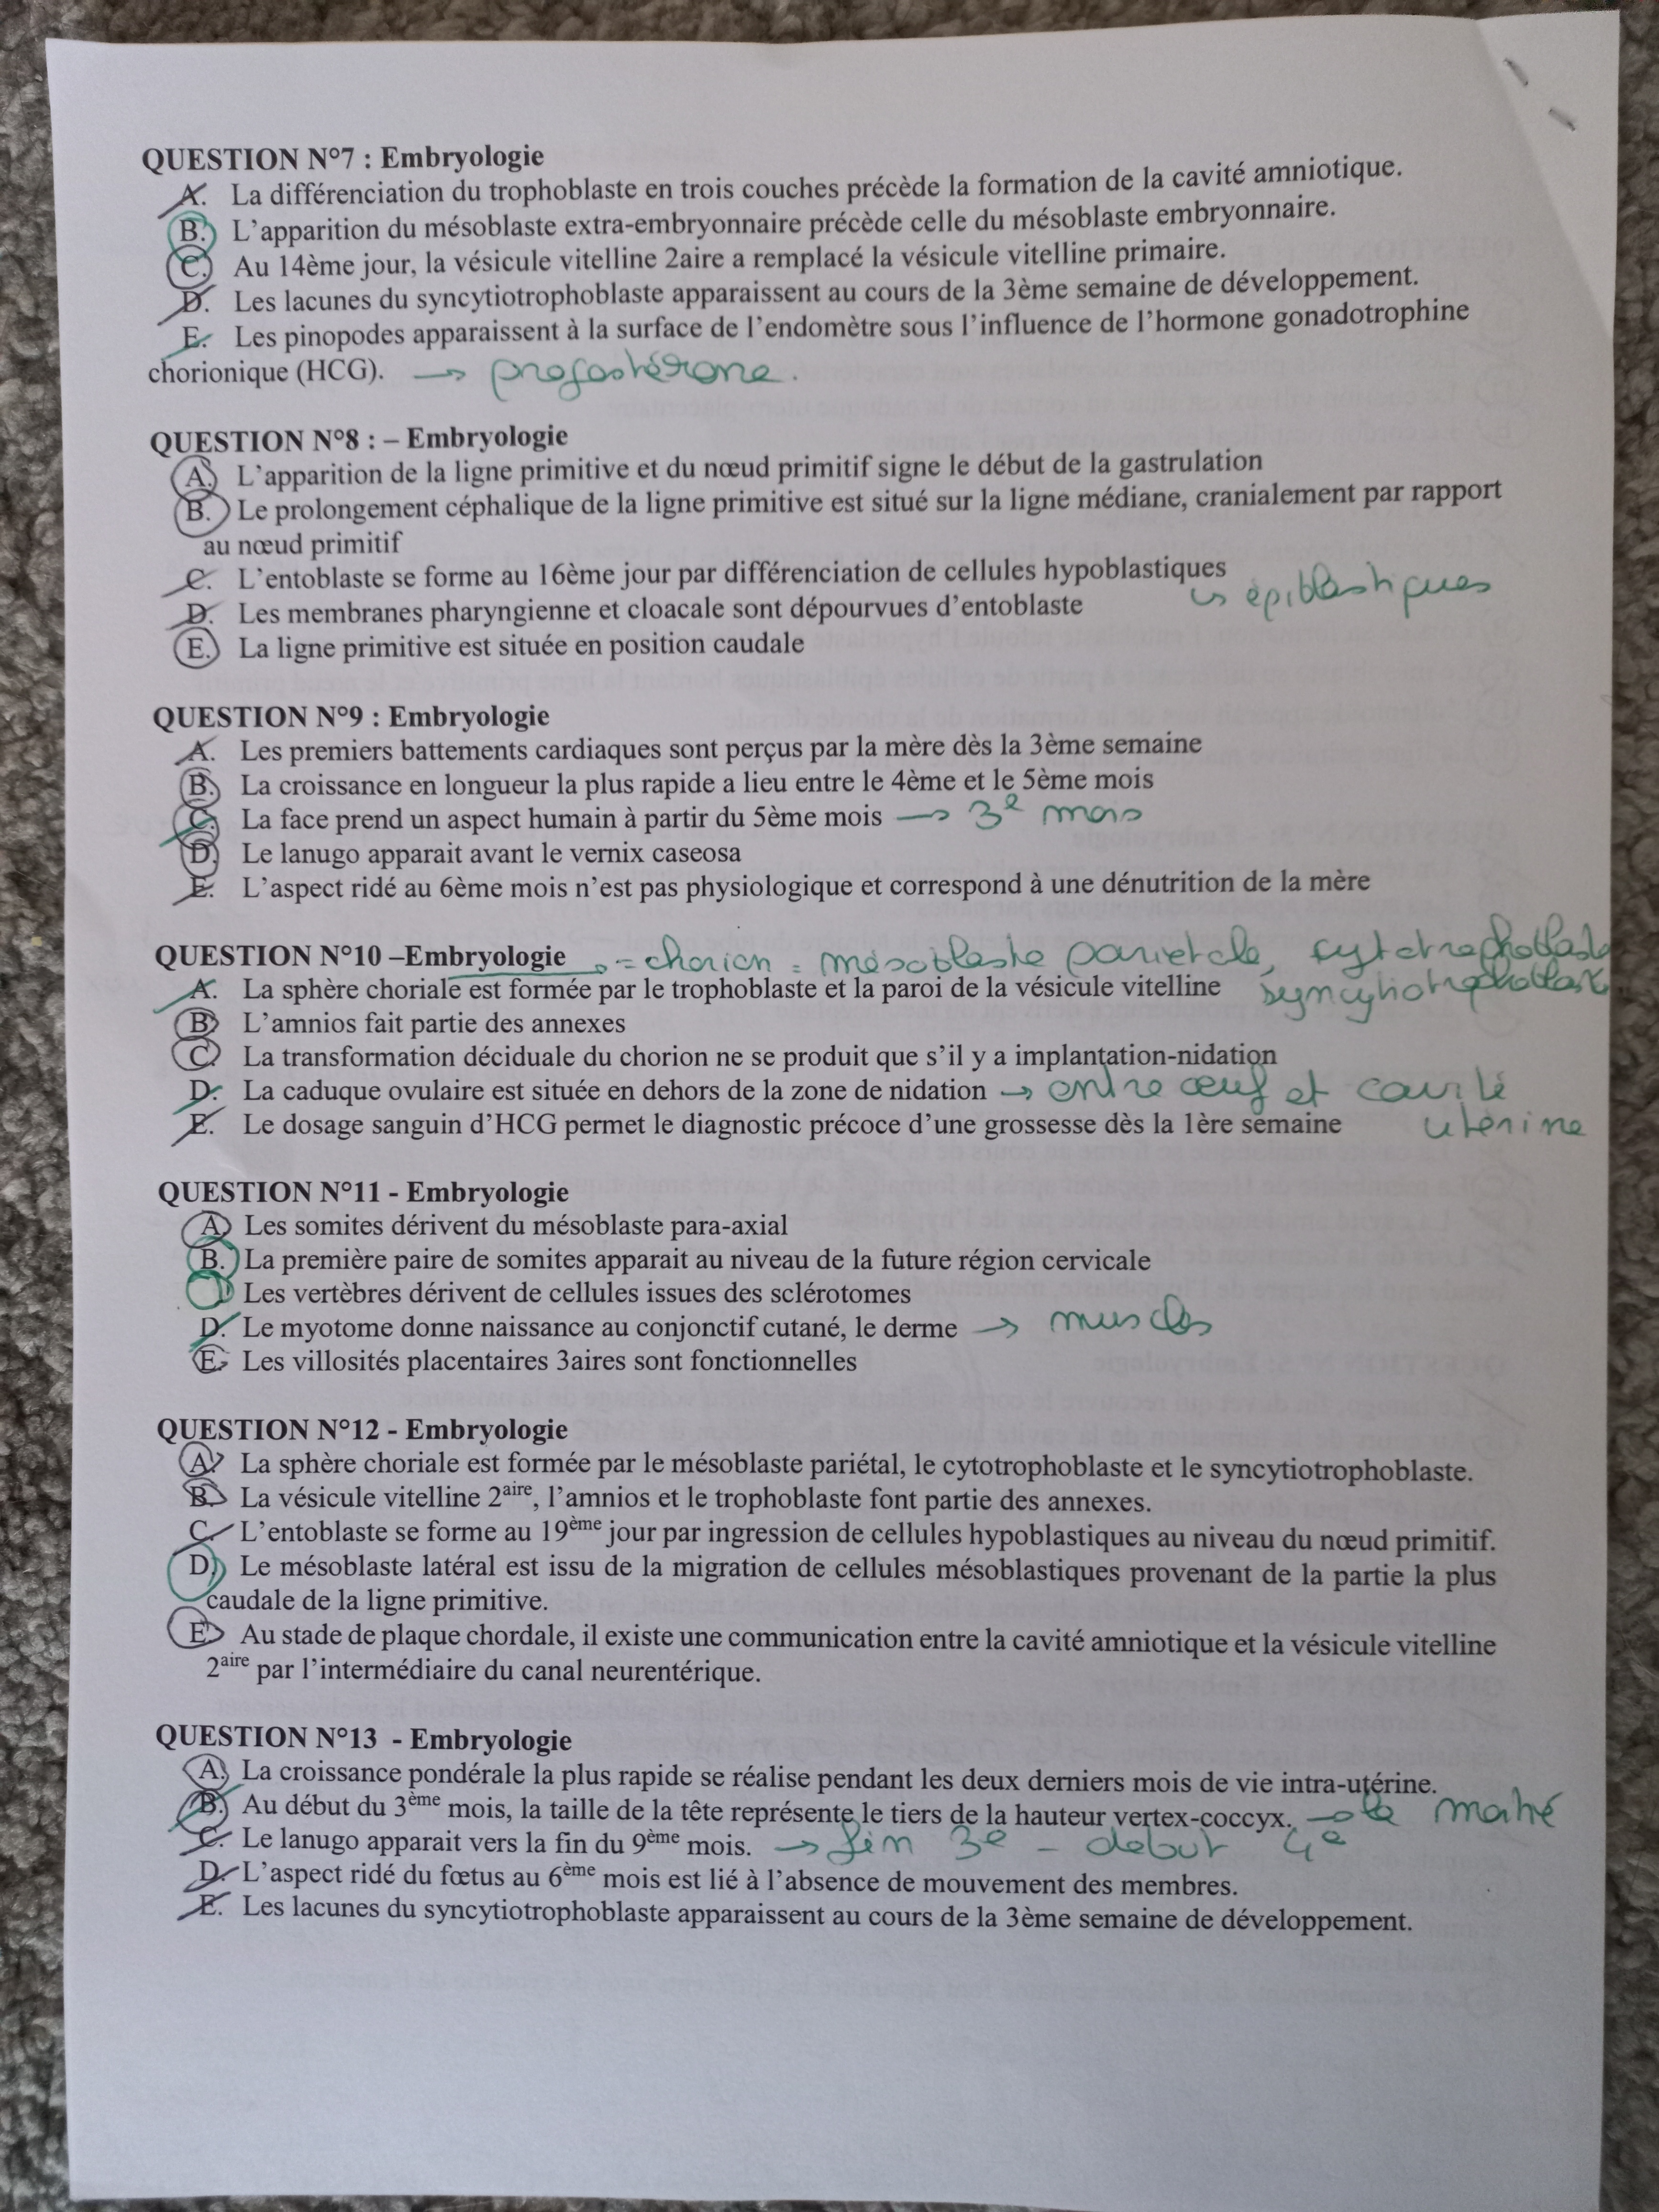 QUESTION N°7 : Embryologie
A. La différenciation du trophoblaste en trois couches précède la formation de la cavité amniotique.
B. L'apparition du mésoblaste extra-embryonnaire précède celle du mésoblaste embryonnaire.
C. Au 14ème jour, la vésicule vitelline 2aire a remplacé la vésicule vitelline primaire.
D. Les lacunes du syncytiotrophoblaste apparaissent au cours de la 3ème semaine de développement.
E. Les pinopodes apparaissent à la surface de l'endomètre sous l'influence de l'hormone gonadotrophine
chorionique (HCG). → progestérone.
QUESTION N°8 : – Embryologie
A. L'apparition de la ligne primitive et du nœud primitif signe le début de la gastrulation
B. Le prolongement céphalique de la ligne primitive est situé sur la ligne médiane, cranialement par rapport
au nœud primitif
C. L'entoblaste se forme au 16ème jour par différenciation de cellules hypoblastiques
↳ épiblastiques
D. Les membranes pharyngienne et cloacale sont dépourvues d'entoblaste
E. La ligne primitive est située en position caudale
QUESTION N°9 : Embryologie
A. Les premiers battements cardiaques sont perçus par la mère dès la 3ème semaine
B. La croissance en longueur la plus rapide a lieu entre le 4ème et le 5ème mois
C. La face prend un aspect humain à partir du 5ème mois → 3e mois
D. Le lanugo apparait avant le vernix caseosa
E. L'aspect ridé au 6ème mois n'est pas physiologique et correspond à une dénutrition de la mère
QUESTION N°10 –Embryologie → = chorion = mésoblaste parietale, cytotrophoblaste
A. La sphère choriale est formée par le trophoblaste et la paroi de la vésicule vitelline syncytiotrophoblaste
B. L'amnios fait partie des annexes
C. La transformation déciduale du chorion ne se produit que s'il y a implantation-nidation
D. La caduque ovulaire est située en dehors de la zone de nidation → entre œuf et cavité
E. Le dosage sanguin d'HCG permet le diagnostic précoce d'une grossesse dès la 1ère semaine utérine
QUESTION N°11 - Embryologie
A. Les somites dérivent du mésoblaste para-axial
B. La première paire de somites apparait au niveau de la future région cervicale
Les vertèbres dérivent de cellules issues des sclérotomes
D. Le myotome donne naissance au conjonctif cutané, le derme → muscles
E. Les villosités placentaires 3aires sont fonctionnelles
QUESTION N°12 - Embryologie
A. La sphère choriale est formée par le mésoblaste pariétal, le cytotrophoblaste et le syncytiotrophoblaste.
B. La vésicule vitelline 2aire, l'amnios et le trophoblaste font partie des annexes.
C. L'entoblaste se forme au 19ème jour par ingression de cellules hypoblastiques au niveau du nœud primitif.
D. Le mésoblaste latéral est issu de la migration de cellules mésoblastiques provenant de la partie la plus
caudale de la ligne primitive.
E. Au stade de plaque chordale, il existe une communication entre la cavité amniotique et la vésicule vitelline
2aire par l'intermédiaire du canal neurentérique.
QUESTION N°13 - Embryologie
A. La croissance pondérale la plus rapide se réalise pendant les deux derniers mois de vie intra-utérine.
B. Au début du 3ème mois, la taille de la tête représente le tiers de la hauteur vertex-coccyx. → la moitié
C. Le lanugo apparait vers la fin du 9ème mois. → fin 3e - debut 4e
D. L'aspect ridé du fœtus au 6ème mois est lié à l'absence de mouvement des membres.
E. Les lacunes du syncytiotrophoblaste apparaissent au cours de la 3ème semaine de développement.